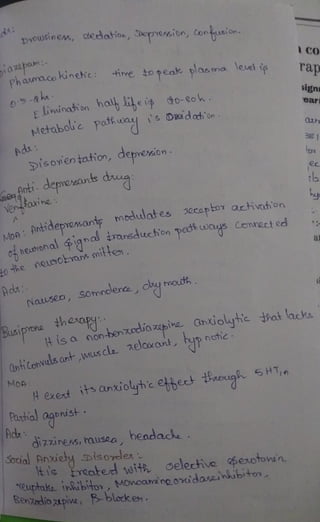 Ads:
Drowsiness, sedation, Depression, confusion.
Diazepam:-
Pharmacokinetic: time to peak plasma level is
0.5-2hr.
Elimination half life is 20-80h.
Metabolic pathway is Oxidation.
Adr:
Disorientation, depression.
Anti-depressants drug:
Venflaxine:
MOA: Antidepressants modulates receptor activation
of neuronal signal transduction pathways connected
to the neurotransmitter.
Adr:-
Nausea, somndence, dry mouth.
Busiprone therapy:-
It is a non-benzodiazepine anxiolytic that lacks
anticonvulsant, muscle relaxant, hypnotic.
MOA:
It exert its anxiolytic effect through 5HT1A
Partial agonist.
Adr:
dizziness, nausea, headache.
Social Anxiety Disorder:-
It is treated with selective serotonin
reuptake inhibitor, Monoamine oxidase inhibitor,
Benzodiazepine, B-blocker.